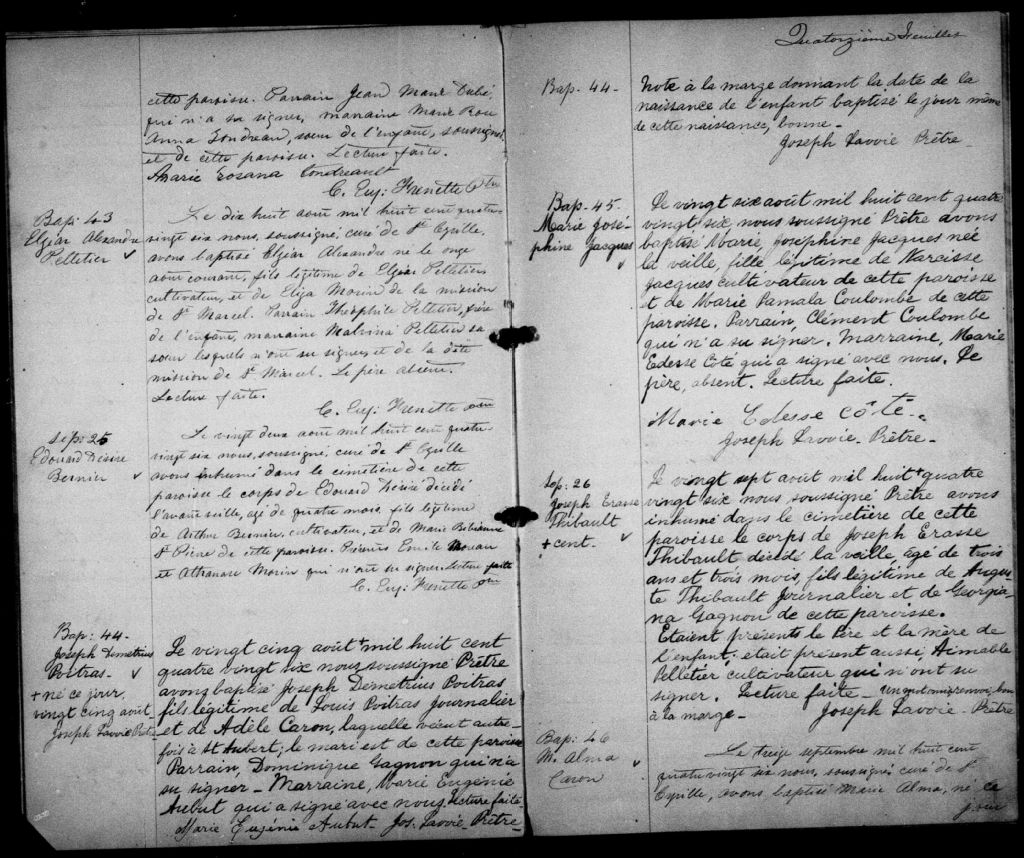 cette paroisse. Parrain Jean Marie Dubé,
qui n'a su signer, marraine Marie Rose
Anna Gondreau, sœur de l'enfant, soussignée
et de cette paroisse. Lecture faite.
Marie Rosana Gondreault
C. Eug: Frenette Ptre
Bap: 43
Elzéar Alexandre
Pelletier
Le dix huit aout mil huit cent quatre
vingt six nous, soussigné, curé de St Cyrille,
avons baptisé Elzéar Alexandre né le onze
aout courant, fils légitime de Elzéar Pelletier,
cultivateur, et de Eliza Morin de la mission
de St Marcel. Parrain Théophile Pelletier, frère
de l'enfant, marraine Malvina Pelletier sa
sœur lesquels n'ont su signer et de la dite
mission de St Marcel. Le père absent.
Lecture faite.
C. Eug: Frenette Ptre
Sép: 25
Edouard Désiré
Bernier
Le vingt deux aout mil huit cent quatre
vingt six nous, soussigné, curé de St Cyrille
avons inhumé dans le cimetière de cette
paroisse le corps de Edouard Désiré décédé
l'avant veille, agé de quatre mois, fils légitime
de Arthur Bernier, cultivateur, et de Marie Bibienne
St Pierre de cette paroisse. Présents Emile
et Athanase Morin qui n'ont su signer. Lecture faite
C. Eug: Frenette Ptre
Bap: 44-
Joseph Demetrius
Poitras-
+ né ce jour,
vingt cinq août-
Joseph Lavoie Ptre
Le vingt cinq août+ mil huit cent
quatre vingt six nous soussigné Prêtre
avons baptisé Joseph Demetrius Poitras
fils légitime de Louis Poitras Journalier
et de Adèle Caron, laquelle vient autre-
fois à St Aubert; le mari est de cette paroisse
Parrain, Dominique Gagnon qui n'a
su signer - Marraine, Marie Eugénie
Aubut qui a signé avec nous. Lecture faite
Marie Eugénie Aubut- Jos. Lavoie-Prêtre-
Quatorzième Feuillet
Bap. 44-
Note à la marge donnant la date de la
naissance de l'enfant baptisé le jour même
de cette naissance, bonne-
Joseph Lavoie Prêtre-
Bap. 45.
Marie José-
phine Jacques
Le vingt six août mil huit cent quatre
vingt six, nous soussigné Prêtre avons
baptisé Marie, Joséphine Jacques née
la veille, fille légitime de Narcisse
Jacques cultivateur de cette paroisse
et de Marie Pamala Coulombe de cette
paroisse. Parrain, Clément Coulombe
qui n'a su signer. Marraine, Marie
Edesse Côté qui a signé avec nous. Le
père, absent. Lecture faite.
Marie Edesse Côté-
Joseph Lavoie- Prêtre-
Sép: 26
Joseph Erasse
Thibault
+ cent-
Le vingt sept août mil huit+ quatre
vingt six nous soussigné Prêtre avons
inhumé dans le cimetière de cette
paroisse le corps de Joseph Erasse
Thibault décédé la veille, âgé de trois
ans et trois mois, fils légitime de Augus-
te Thibault Journalier et de Georgia-
na Gagnon de cette paroisse.
Etaient présents le Père et la mère de
l'enfant; était présent aussi, Aimable
Pelletier cultivateur qui n'ont su
signer. Lecture faite- un mot mis en renvoi, bon
à la marge- Joseph Lavoie- Prêtre
Bap: 46
M. Alma
Caron
Le treize septembre mil huit cent
quatre vingt six nous, soussigné curé de St
Cyrille, avons baptisé Marie Alma, né ce
jour